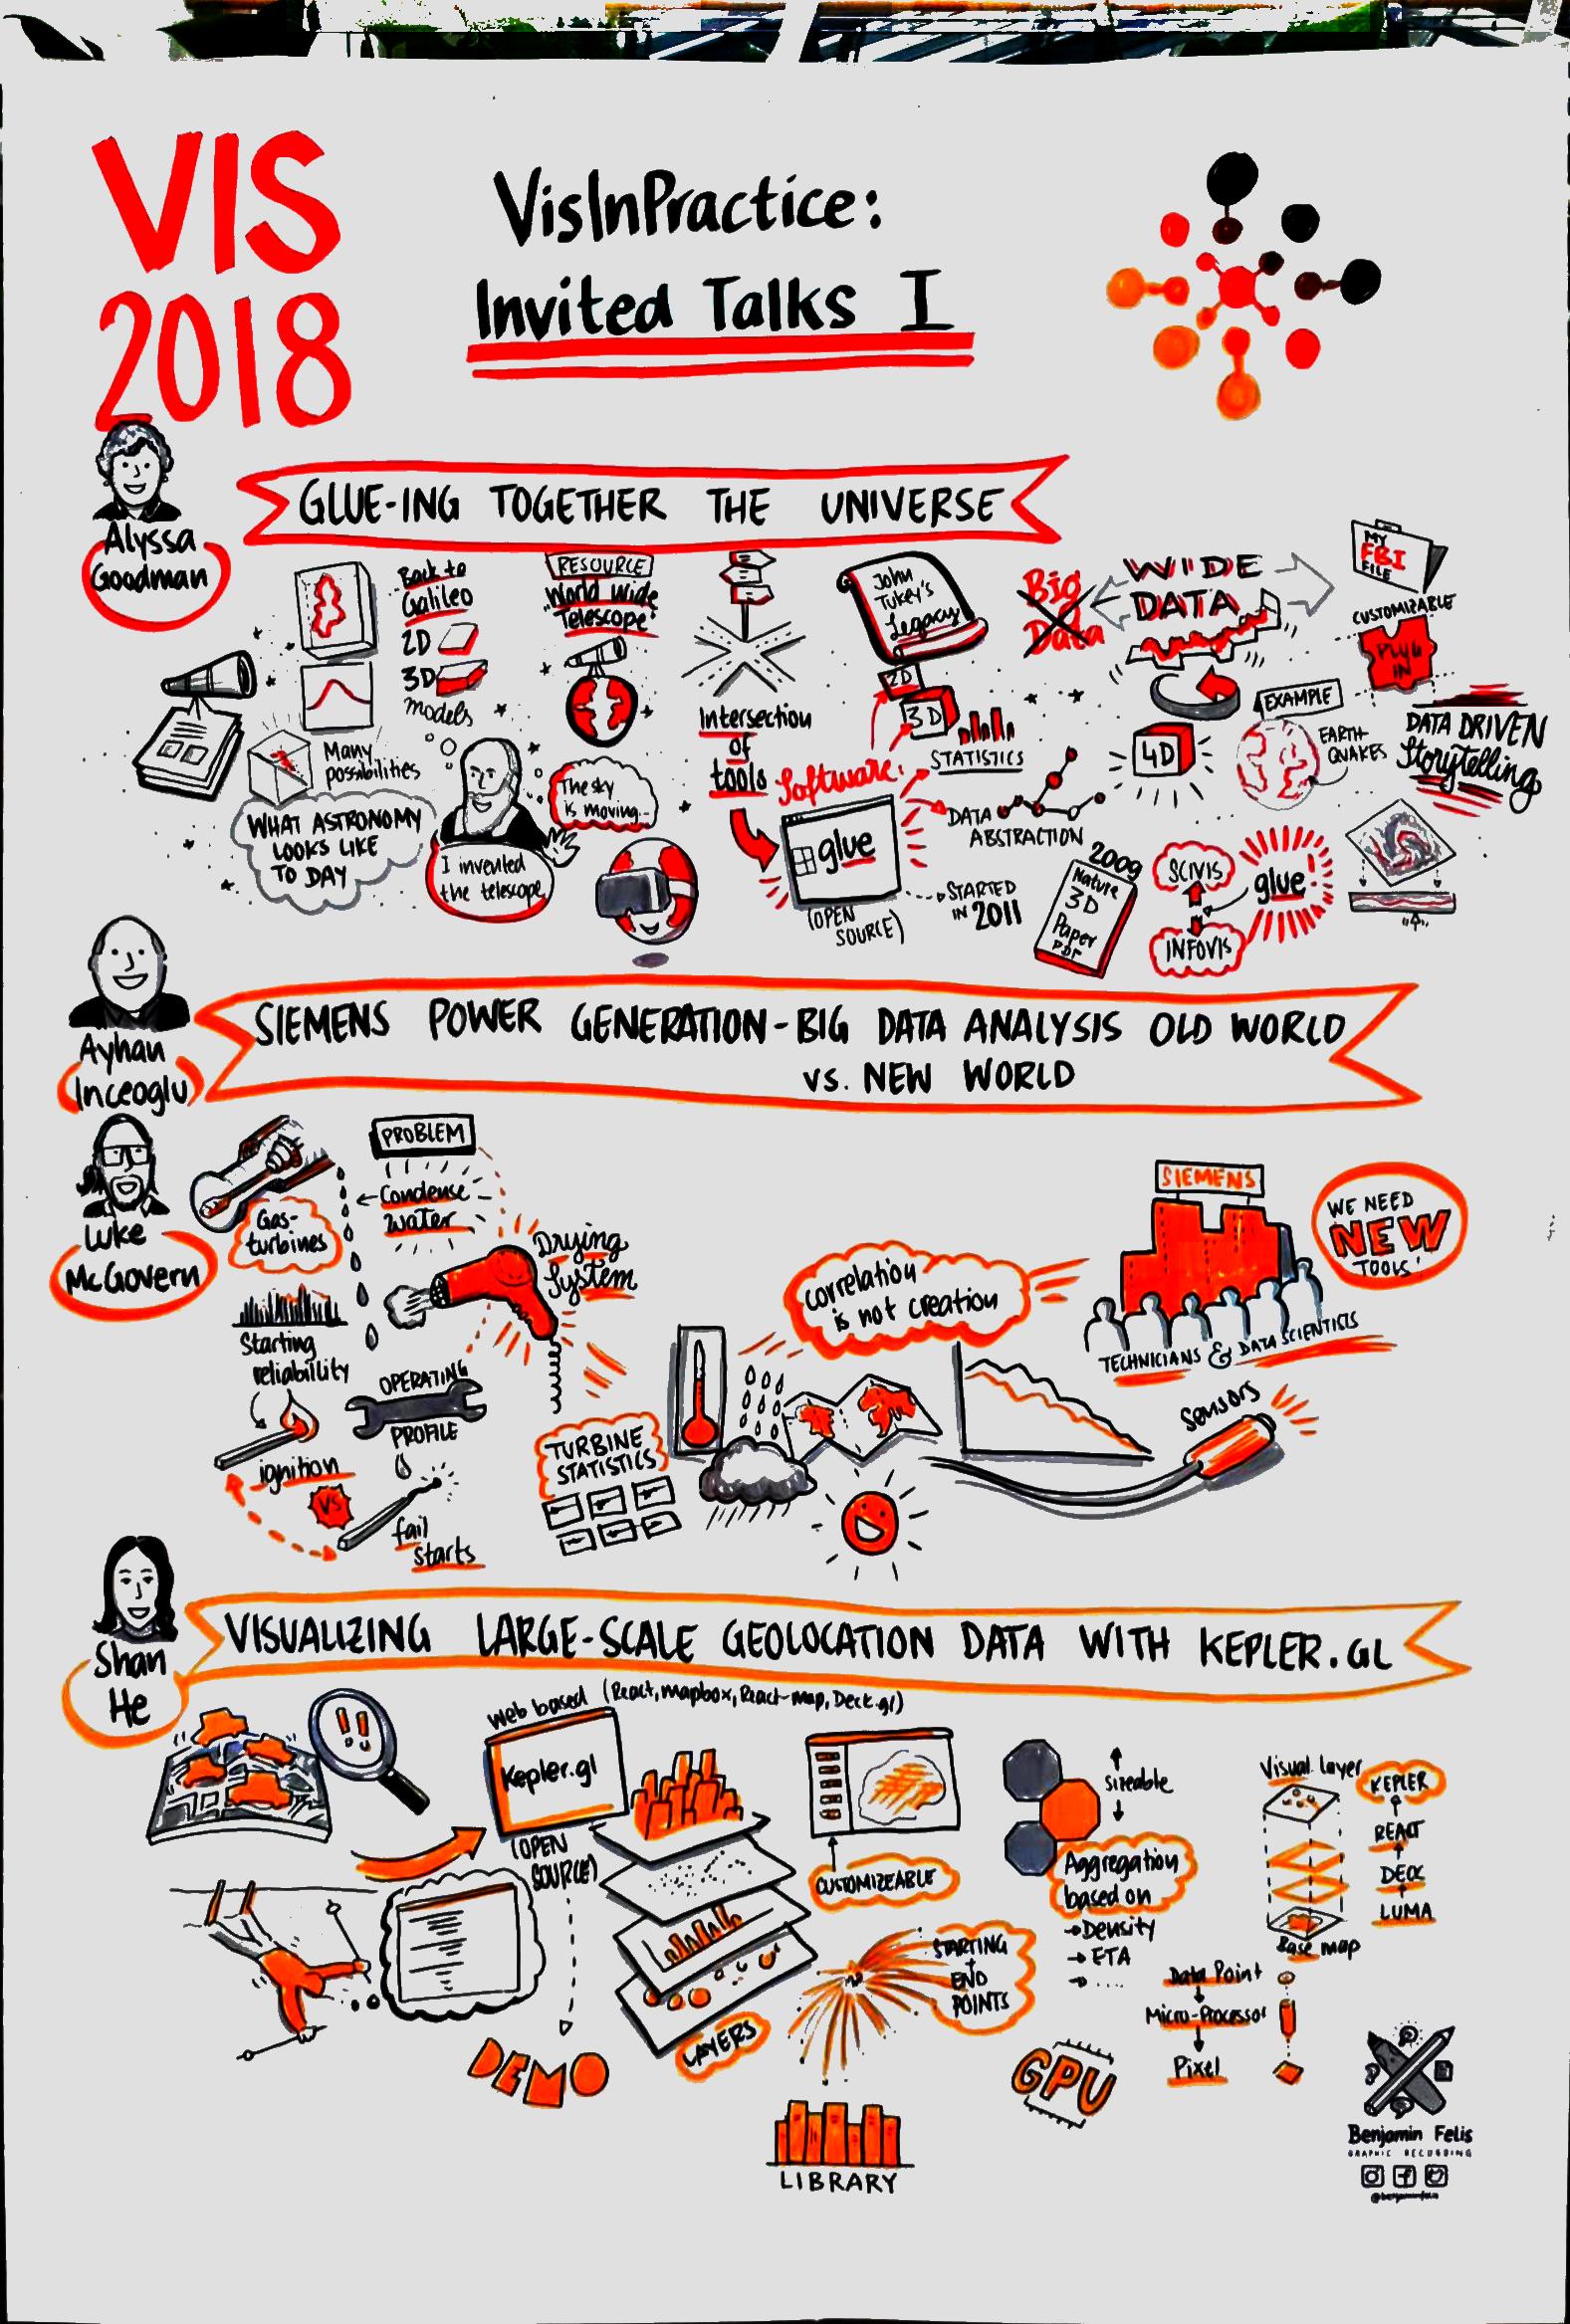 VIS
2018
VisInPractice:
Invited Talks I
Alyssa
Goodman
GLUE-ING TOGETHER THE UNIVERSE
"Back to
Galileo
2D
3D
models
Many
possibilities
WHAT ASTRONOMY
LOOKS LIKE
TO DAY
I invented
the telescope
The sky
is moving...
RESOURCE
"World Wide
Telescope"
Intersection
of
tools
John
Tukey's
Legacy
2D
3D
STATISTICS
Software
glue
(OPEN
SOURCE)
DATA
ABSTRACTION
STARTED
IN 2011
Big
Data
WIDE
DATA
4D
EXAMPLE
EARTH-
QUAKES
2009
Nature
3D
Paper
PDF
SCIVIS
INFOVIS
glue!
MY
FBI
FILE
CUSTOMIZABLE
PLUG
IN
DATA DRIVEN
Storytelling
Ayhan
Inceoglu
Luke
McGovern
SIEMENS POWER GENERATION-BIG DATA ANALYSIS OLD WORLD
VS. NEW WORLD
PROBLEM
Condense
water
Gas-
turbines
Drying
System
Starting
reliability
OPERATING
PROFILE
ignition
VS
fail
starts
TURBINE
STATISTICS
correlation
is not creation
SIEMENS
WE NEED
NEW
TOOLS!
TECHNICIANS & DATA SCIENTISTS
Sensors
Shan
He
VISUALIZING LARGE-SCALE GEOLOCATION DATA WITH KEPLER.GL
Web based (React, mapbox, React-map, Deck.gl)
!!
Kepler.gl
(OPEN
SOURCE)
DEMO
LAYERS
CUSTOMIZEABLE
STARTING
+
END
POINTS
LIBRARY
sizeable
Aggregation
based on
→ Density
→ ETA
→ ....
GPU
Visual layer
Base map
KEPLER
REACT
DECK
LUMA
Data Point
Micro-Processor
Pixel
Benjamin Felis
GRAPHIC RECORDING